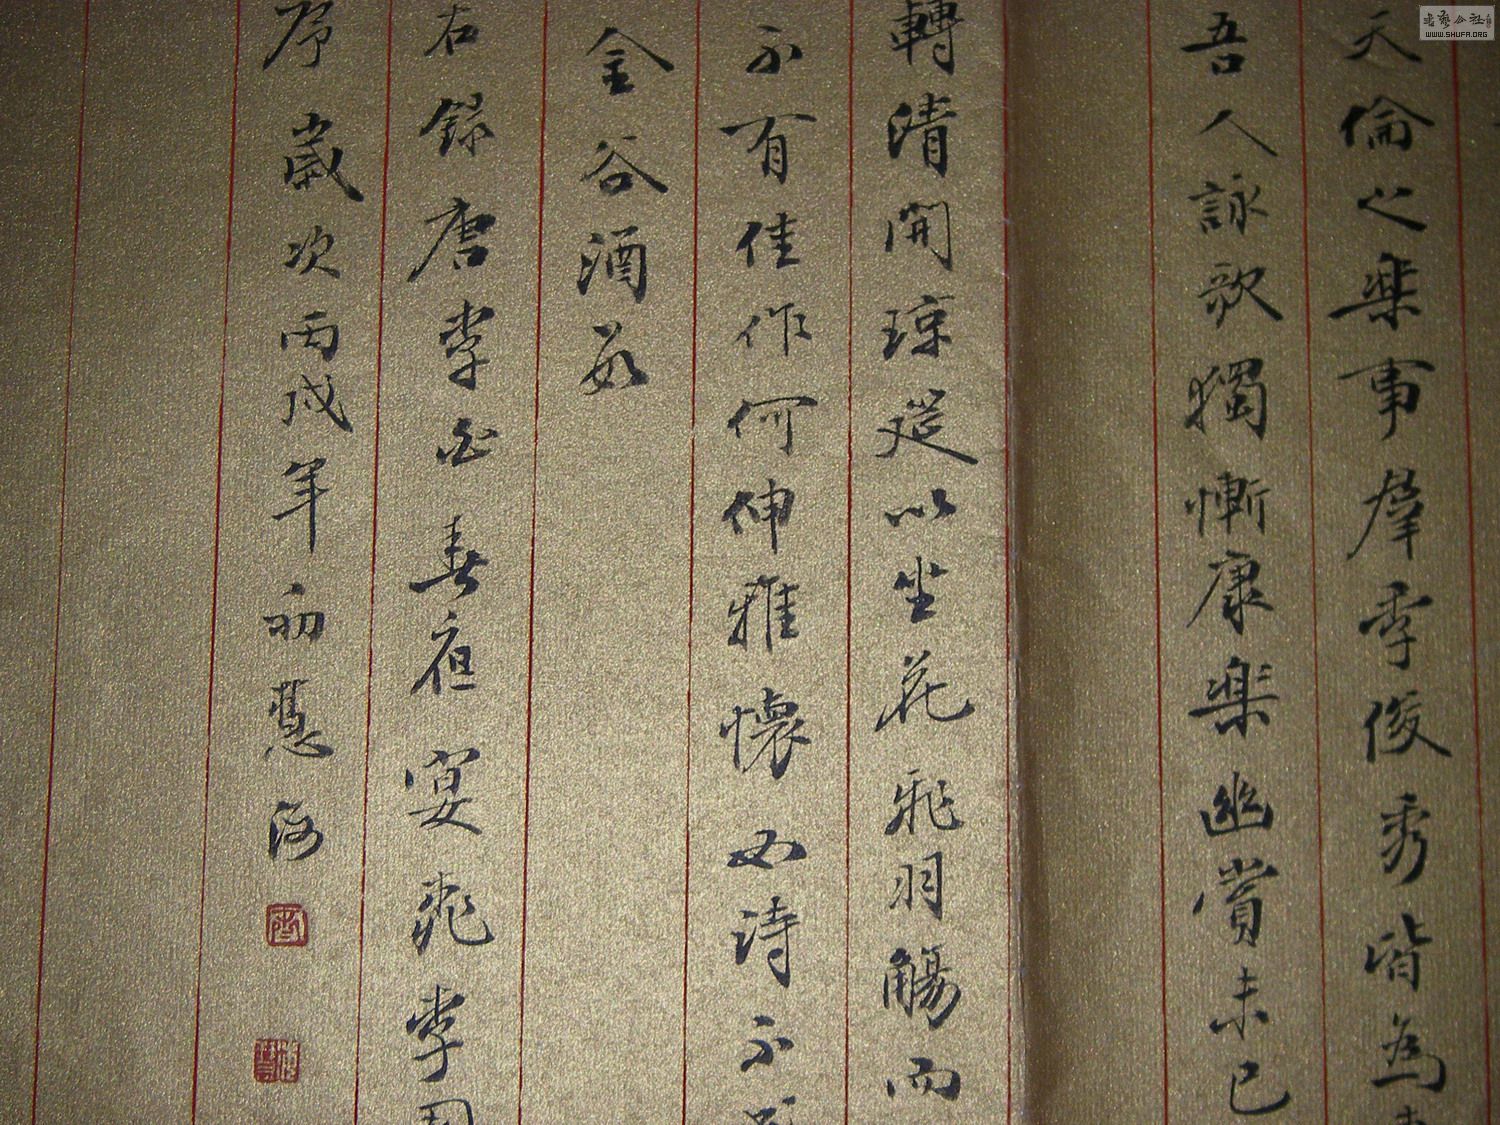 天倫之樂事羣季俊秀皆為
吾人詠歌獨慚康樂幽賞未已
轉清開瓊筵以坐花飛羽觴而
不有佳作何伸雅懷如詩不
金谷酒數
右錄唐李白春夜宴桃李園
序歲次丙戌年初慧海
WWW.SHUFA.ORG